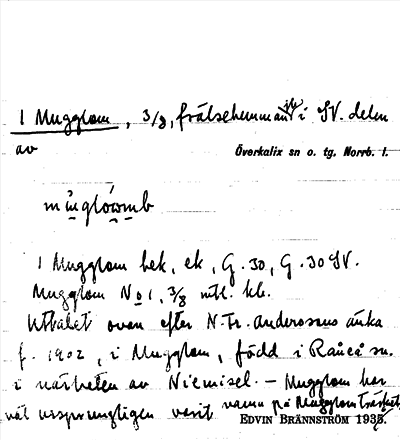 1 Mugglom, 3/8, frälsehemman i SV. delen
av Överkalix sn o. tg. Norrb. l.
1 Mugglom bek, ek, G. 30, G. 30 SV.
Mugglom No 1, 3/8 mtl. kr.
Uttalet ovan efter N. Tr. Anderssons änka
f. 1902, i Mugglom, född i Råneå sn.
i närheten av Niemisel. – Mugglom har
väl ursprungligen varit namn på Mugglomträsket
EDVIN BRÄNNSTRÖM 1935.